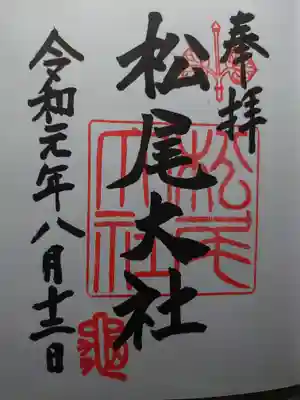 奉拝
松尾大社
松尾
大社
令和元年八月十三日